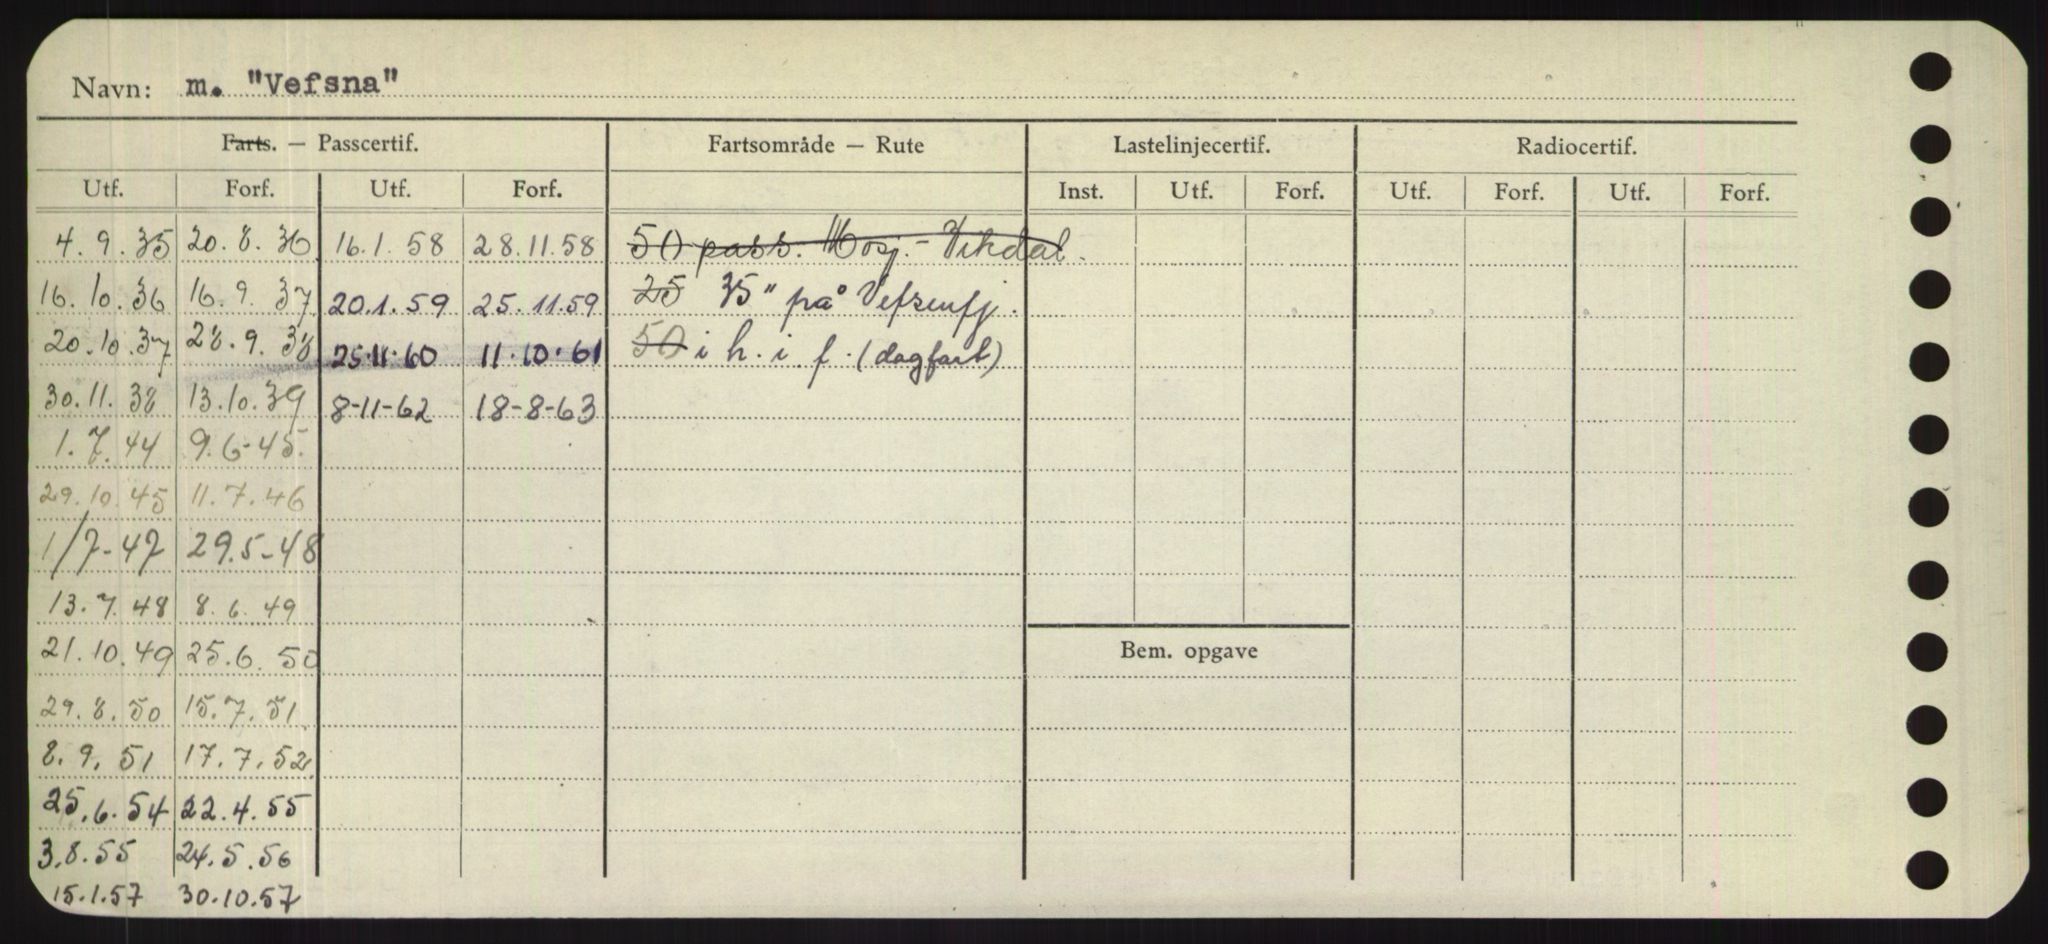 Navn: m. "Vefsna"
Farts. — Passcertif. Fartsområde — Rute Lastelinjecertif. Radiocertif.
Utf. Forf. Utf. Forf. Inst. Utf. Forf. Utf. Forf. Utf. Forf.
4.9.35 20.8.36 16.1.58 28.11.58 50 pass. Mosj.- Vikdal.
16.10.36 16.9.37 20.1.59 25.11.59 25 35 " på Vefsenfj.
20.10.37 28.9.38 25.11.60 11.10.61 50 i h. i f. (dagfart)
30.11.38 13.10.39 8-11-62 18-8-63
1.7.44 9.6-45.
29.10.45 11.7.46
1/7-47 29.5-48
13.7.48 8.6.49
21.10.49 25.6.50
Bem. opgave
29.8.50 15.7.51
8.9.51 17.7.52
25.6.54 22.4.55
3.8.55 24.5.56
15.1.57 30.10.57